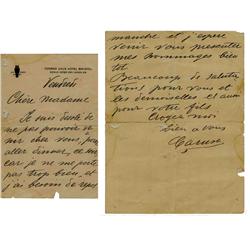 Vendredi
Chère Madame
Je suis désolé de
ne pas pouvoir ve
nir chez vous, pour
aller dinner, ce soir
car je ne me porte
pas trop bien, et
j'ai besoin de repos
manche et j'espère
venir vous presenter
mes hommages bien
tot
Beaucoup de saluta
tions pour vous et
les demoiselles et aussi
pour votre fils
Croyez moi
bien a vous
Caruso